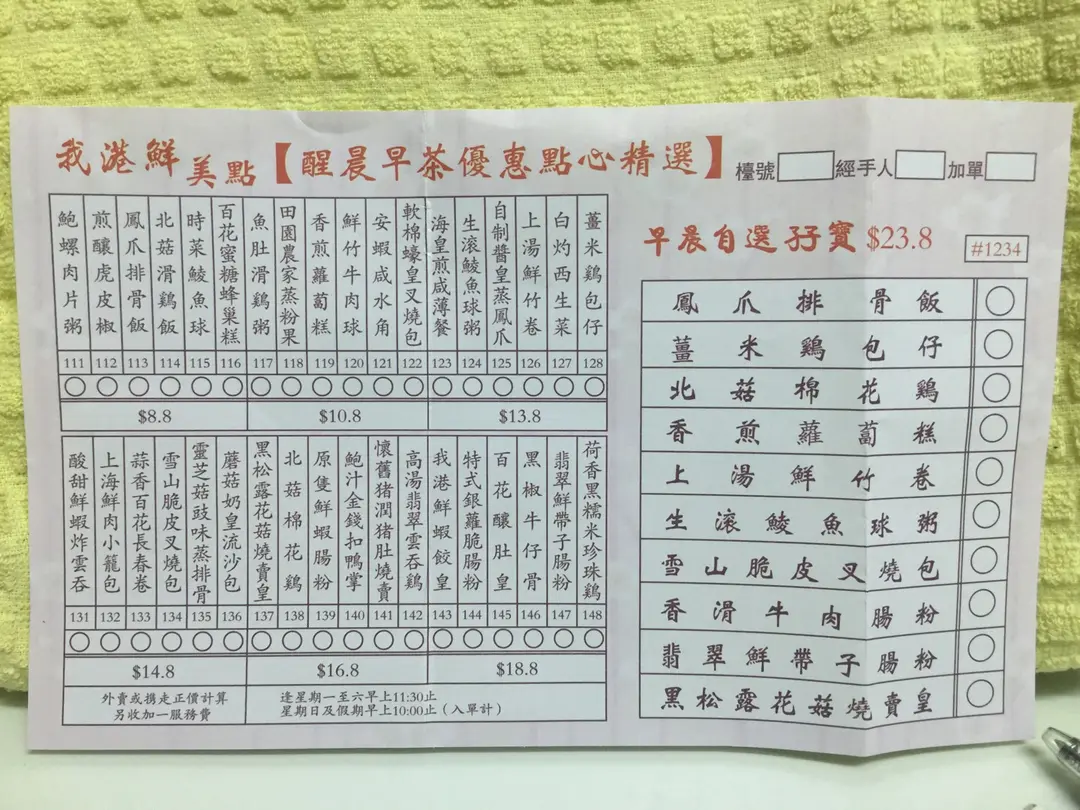 我港鮮美點【醒晨早茶優惠點心精選】
檯號 經手人 加單
鮑螺肉片粥 111
煎釀虎皮椒 112
鳳爪排骨飯 113
北菇滑鷄飯 114
時菜鯪魚球 115
百花蜜糖蜂巢糕 116
魚肚滑鷄粥 117
田園農家蒸粉果 118
香煎蘿蔔糕 119
鮮竹牛肉球 120
安蝦咸水角 121
軟棉蠔皇叉燒包 122
海皇煎咸薄餐 123
生滾鯪魚球粥 124
自制醬皇蒸鳳爪 125
上湯鮮竹卷 126
白灼西生菜 127
薑米鷄包仔 128
$8.8 $10.8 $13.8
酸甜鮮蝦炸雲吞 131
上海鮮肉小籠包 132
蒜香百花長春卷 133
雪山脆皮叉燒包 134
靈芝菇豉味蒸排骨 135
蘑菇奶皇流沙包 136
黑松露花菇燒賣皇 137
北菇棉花鷄 138
原隻鮮蝦腸粉 139
鮑汁金錢扣鴨掌 140
懷舊猪潤猪肚燒賣 141
高湯翡翠雲吞鷄 142
我港鮮蝦餃皇 143
特式銀蘿脆腸粉 144
百花釀肚皇 145
黑椒牛仔骨 146
翡翠鮮帶子腸粉 147
荷香黑糯米珍珠鷄 148
$14.8 $16.8 $18.8
外賣或携走正價計算
另收加一服務費
逢星期一至六早上11:30止
星期日及假期早上10:00止（入單計）
早晨自選孖寶 $23.8
#1234
鳳爪排骨飯
薑米鷄包仔
北菇棉花鷄
香煎蘿蔔糕
上湯鮮竹卷
生滾鯪魚球粥
雪山脆皮叉燒包
香滑牛肉腸粉
翡翠鮮帶子腸粉
黑松露花菇燒賣皇